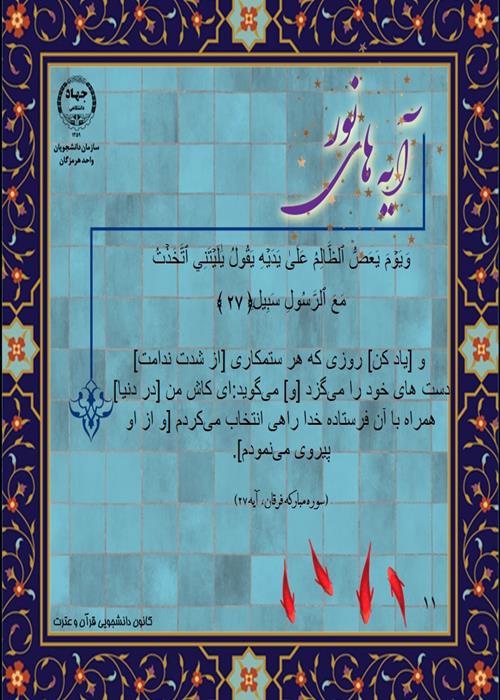 جهاد
دانشگاهی
۱۳۵۹
سازمان دانشجویان
واحد هرمزگان
آیه های نور
وَيَوْمَ يَعَضُّ ٱلظَّالِمُ عَلَىٰ يَدَيْهِ يَقُولُ يَٰلَيْتَنِي ٱتَّخَذْتُ
مَعَ ٱلرَّسُولِ سَبِيل﴿ ۲۷ ﴾
و [یاد کن] روزی که هر ستمکاری [از شدت ندامت]
دست های خود را می‌گزد [و] می‌گوید:ای کاش من [در دنیا]
همراه با آن فرستاده خدا راهی انتخاب می‌کردم [و از او
پیروی می‌نمودم].
(سوره مبارکه فرقان، آیه ۲۷)
۱۱
کانون دانشجویی قرآن و عترت